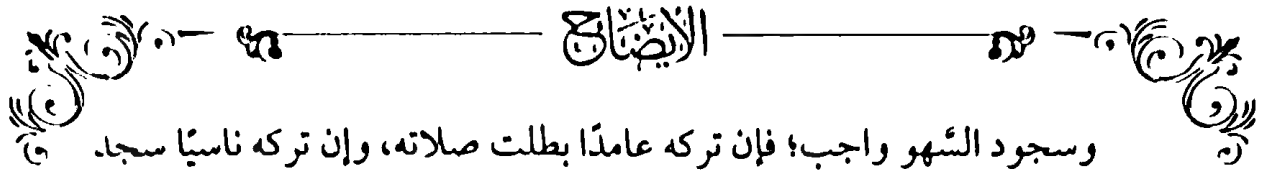 الإيضاح
وسجود السَّهو واجب؛ فإن تركه عامدًا بطلت صلاته، وإن تركه ناسيًا سجد.